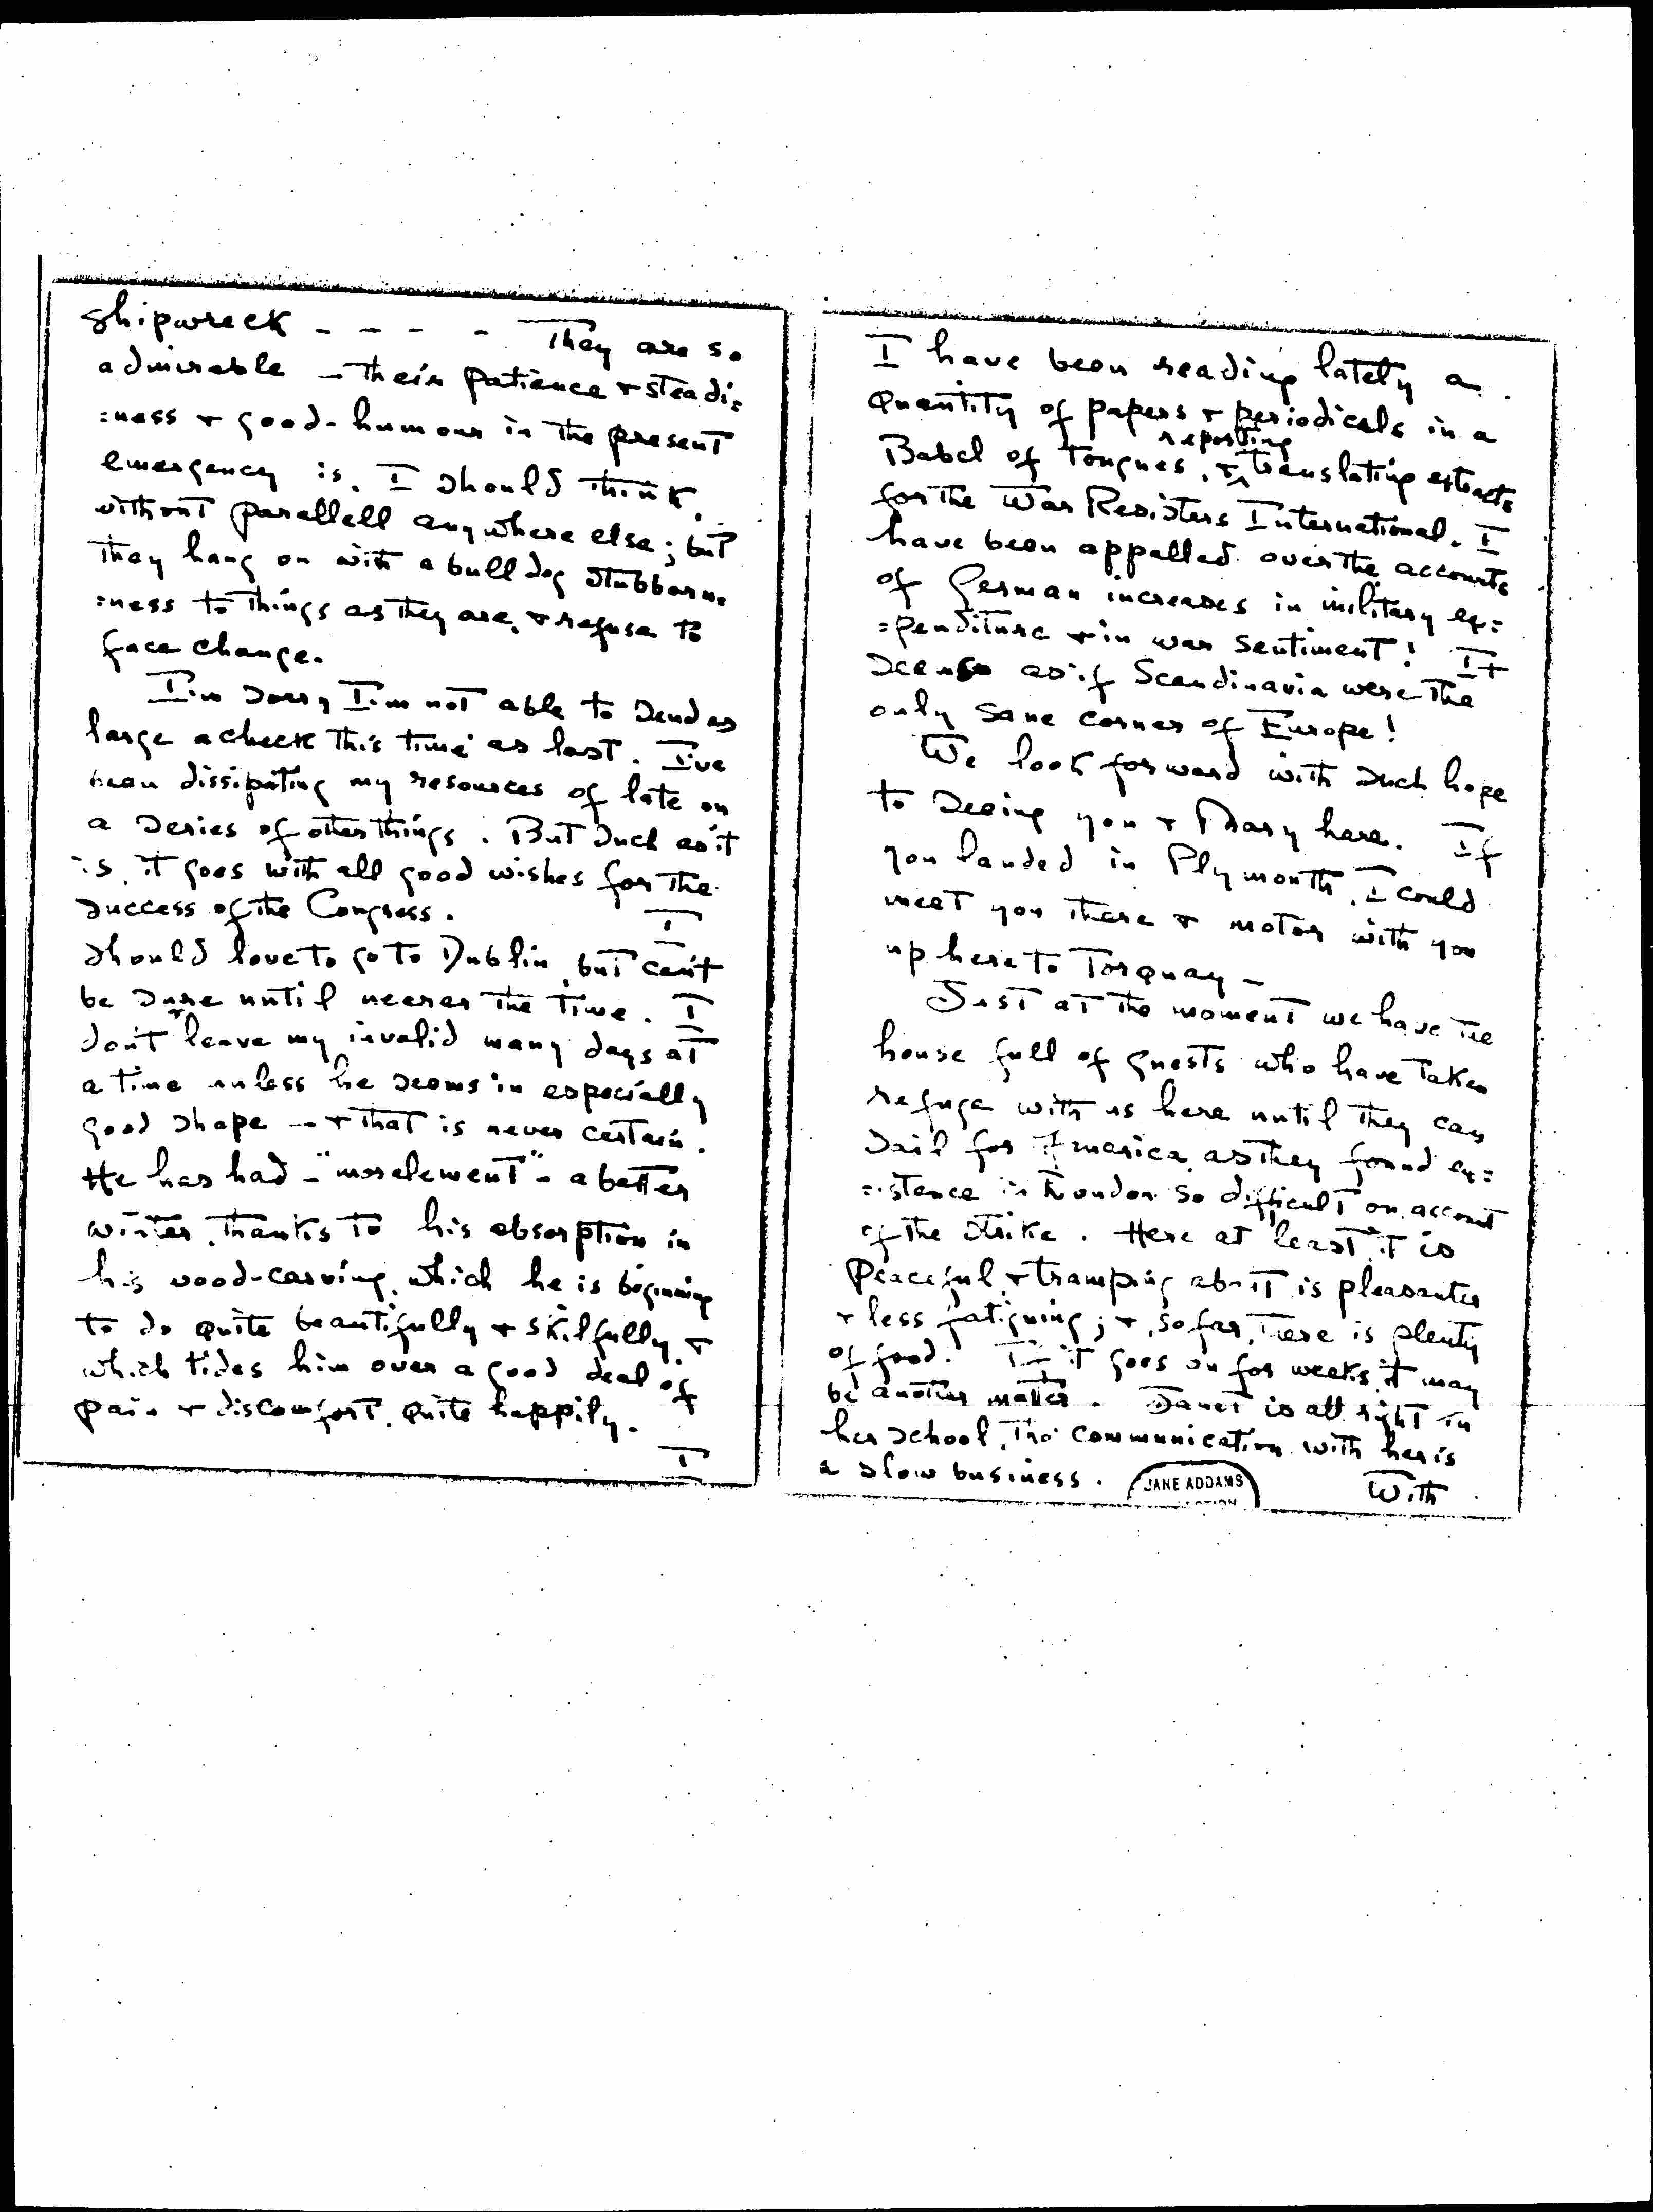 shipwreck - - - - They are so
admirable - their patience & steadi=
=ness & good-humour in the present
emergency is, I should think,
without parallell anywhere else; but
they hang on with a bull dog stubborn=
=ness to things as they are, & refuse to
face change.
I'm sorry I'm not able to send as
large a check this time as last. I've
been dissipating my resources of late on
a series of other things. But such as it
is, it goes with all good wishes for the
success of the Congress. I
should love to go to Dublin, but can't
be sure until nearer the time. I
don't leave my invalid many days at
a time unless he seems in especially
good shape - & that is never certain.
He has had - "morelement" - a better
winter, thanks to his absorption in
his wood-carving, which he is beginning
to do quite beautifully & skilfully, &
which tides him over a good deal of
pain & discomfort, quite happily.
I
I have been reading lately a
quantity of papers & periodicals in a
reporting
Babel of tongues, & translating extracts
for the War Resisters International. I
have been appalled over the accounts
of German increases in military ex=
=penditure & in war sentiment! It
seems as if Scandinavia were the
only sane corner of Europe!
We look forward with such hope
to seeing you & Mary here. If
you landed in Plymouth, I could
meet you there & motor with you
up here to Torquay -
Just at the moment we have the
house full of guests who have taken
refuge with us here until they can
sail for America, as they found ex=
=istence in London so difficult on account
of the strike. Here at least it is
peaceful & tramping about is pleasanter
& less fatiguing; &, so far, there is plenty
of food. If it goes on for weeks, it may
be another matter. Janet is all right in
her school, tho' communication with her is
a slow business. With
JANE ADDAMS